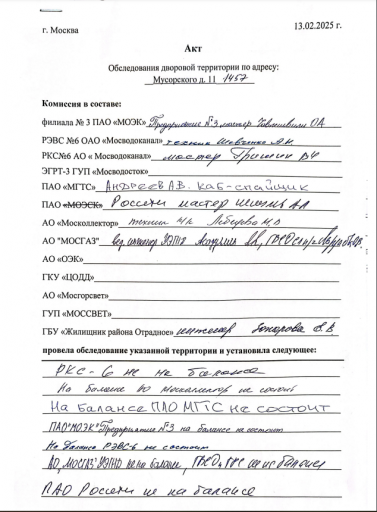 г. Москва
13.02.2025 г.
Акт
Обследования дворовой территории по адресу:
Мусорского д. 11 1457
Комиссия в составе:
филиала № 3 ПАО «МОЭК» Предприятие №3, мастер О.А.
РЭВС №6 ОАО «Мосводоканал» техник Шевченко А.Н.
РКС№6 АО « Мосводоканал» мастер Гришин
ЭГРТ-3 ГУП «Мосводосток»
ПАО «МГТС» Андреев А.В. каб-спайщик
ПАО «МОЭСК» Россети мастер
АО «Москоллектор» техник Лебедева
АО "МОСГАЗ" вед. инженер УЭГХО
АО «ОЭК»
ГКУ «ЦОДД»
АО «Мосгорсвет»
ГУП «МОССВЕТ»
ГБУ «Жилищник района Отрадное» инженер
провела обследование указанной территории и установила следующее:
РКС-6 не на балансе
На балансе АО москоллектор не состоит
На балансе ПАО МГТС не состоит
ПАО "МОЭК" Предприятие №3 на балансе не состоит
На балансе РЭВС-6 не состоит
АО "МОСГАЗ" не на балансе, не на балансе
ПАО Россети не на балансе